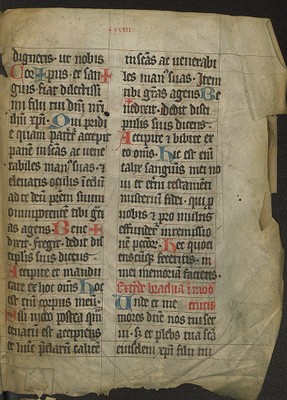 digneris · ut nobis
Cor✠pus · et san✠
guis · fiat dilectissi
mi filii tui dñi nrĩ
ihũ xp̃i · Qui pridi
e quam pateret̃ accepit
panẽ in scãs ac vene
rabiles man⁹ suas · ⁊
elevatis oculis ĩ celũ
ad te deũ prẽm suum
omnipotentẽ tibi grã
as agens · Bene✠
dixit · fregit · dedit dis
cipulis suis dicens ·
Accipite et mandu
cate ex hoc om̃s · hoc
est em̃ corpus meũ ·
Sili modo postea quã
cenatũ est accipiens
et hũc p̃clarũ calicẽ
in scãs ac venerabi
les man⁹ suas · Itẽm
tibi grãs agens Be
nedixit · Dedit disci
pulis suis dicens ·
Accipite et bibite ex
eo om̃s · hic est em̃
calix sangũis mei no
vi et etñi testamẽti
misteriũ fidei · qui p̱
vobis ⁊ pro multis
effundet᷑ ĩ remissio
nẽ pccõꝝ · Hec quoci
enscũqꝫ feceritis · in
mei memoriã facietis ·
Extẽde brachia ĩ mod
Unde et me crucis
mores dñe nos tui ser
vi · sꝫ et plebs tua scã
eiusdem xp̃i filii tui